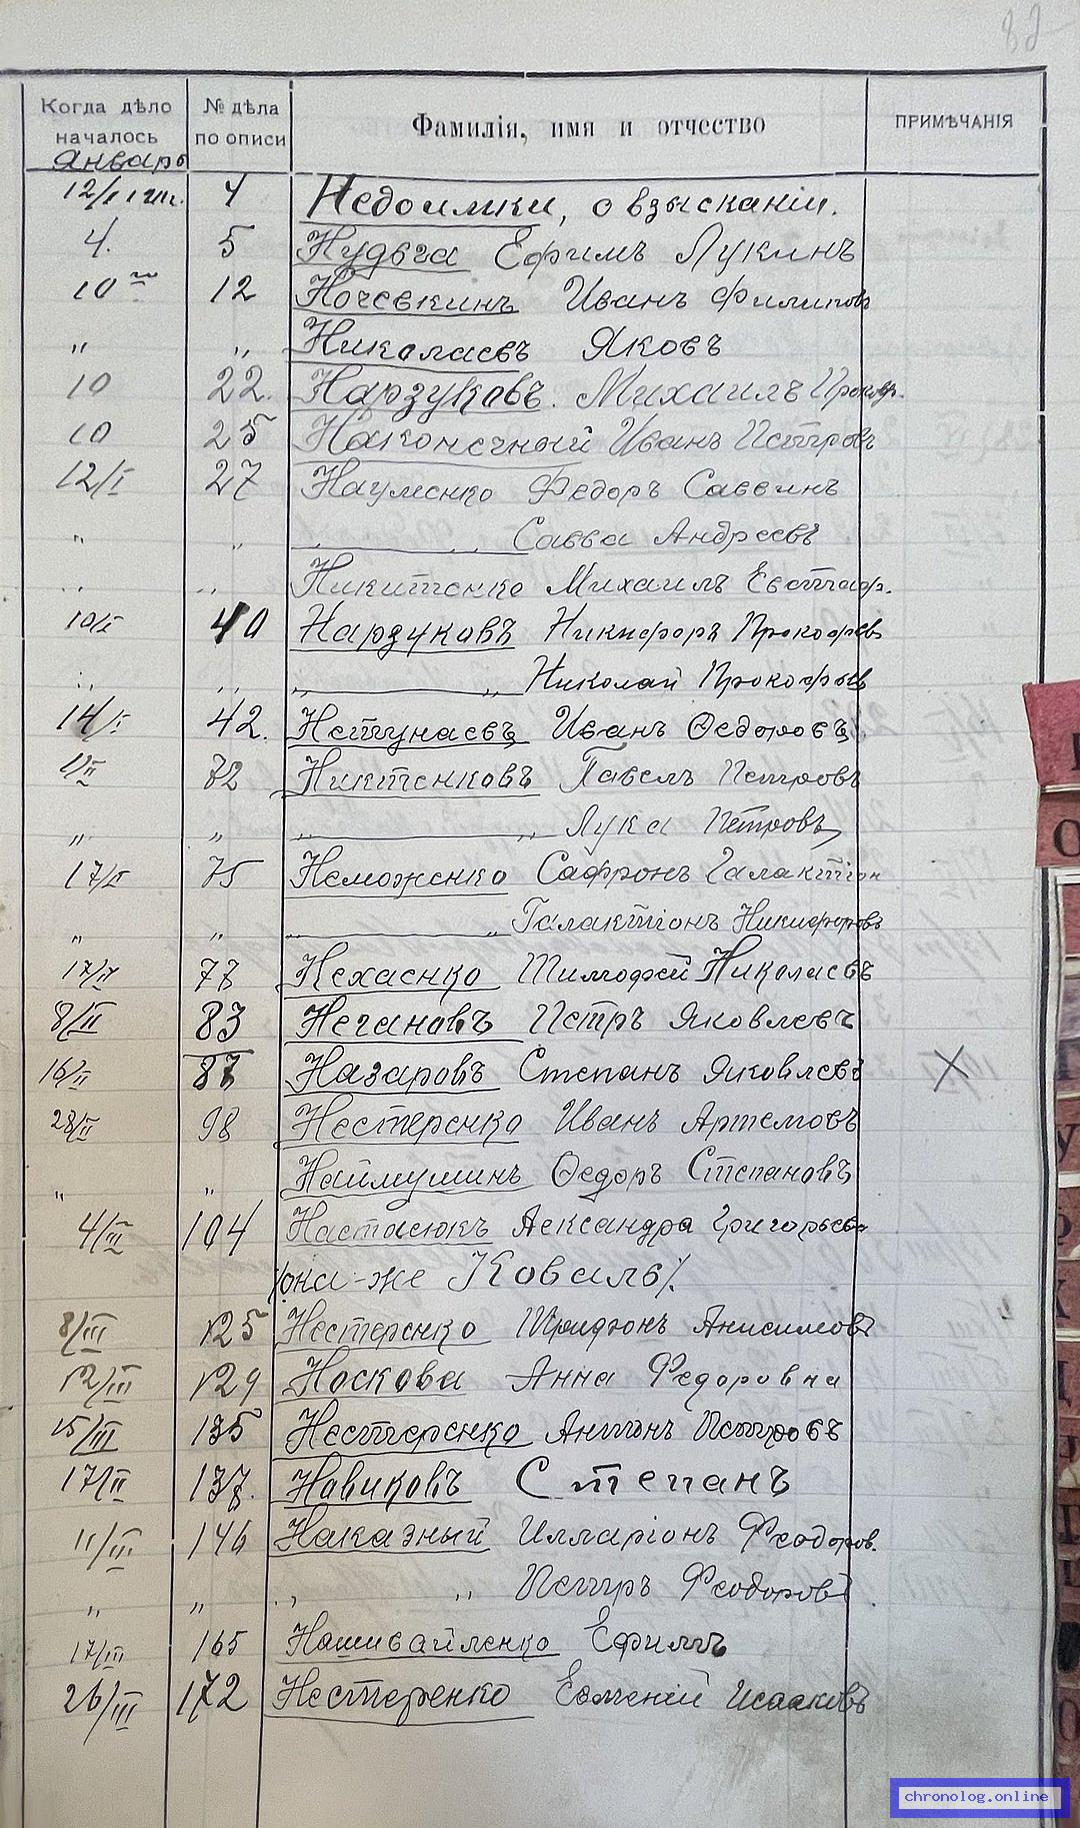 82
Когда дѣло началось
№ дѣла по описи
Фамилія, имя и отчество
ПРИМѢЧАНІЯ
Январь
12/I 4 Недоимки, о взысканіи.
4. 5 Нудьга Ефимъ Лукинъ
10 12 Ночевкинъ Иванъ Филиповъ
„ „ Николаевъ Яковъ
10 22. Нарзуковъ. Михаилъ Прокоф.
10 25 Наконечный Иванъ Петровъ
12/I 27 Науменко Федоръ Саввинъ
„ „ „ „ Савва Андреевъ
„ „ Никитенко Михаилъ Евстаф.
10/I 40 Нарзуковъ Никифоръ Прокофьевъ
„ „ „ „ Николай Прокофьевъ
14/I 42. Нетунаевъ Иванъ Ѳедоровъ
1/II 72 Никтенковъ Павелъ Петровъ
„ „ „ „ Лука Петровъ
17/II 75 Неможенко Сафронъ Галактіон
„ „ „ „ Галактіонъ Никифоровъ
17/II 77 Нехаенко Тимофей Николаевъ
8/II 83 Негановъ Петръ Яковлевъ
16/II 87 Назаровъ Степанъ Яковлевъ X
28/II 98 Нестеренко Иванъ Артемовъ
„ „ Наймушинъ Ѳедоръ Степановъ
4/III 104 Настасюкъ Александра Григорьева
/она-же Коваль/.
8/III 125 Нестеренко Спиридонъ Анисимовъ
12/III 129 Носкова Анна Федоровна
15/III 135 Нестеренко Антонъ Петровъ
17/II 137. Новиковъ Степанъ
11/III 146 Наказный Илларіонъ Феодоров.
„ „ „ „ Петръ Феодоровъ.
17/III 165 Нашивайленко Ефимъ
26/III 172 Нестеренко Евгеній Исааковъ
chronolog.online